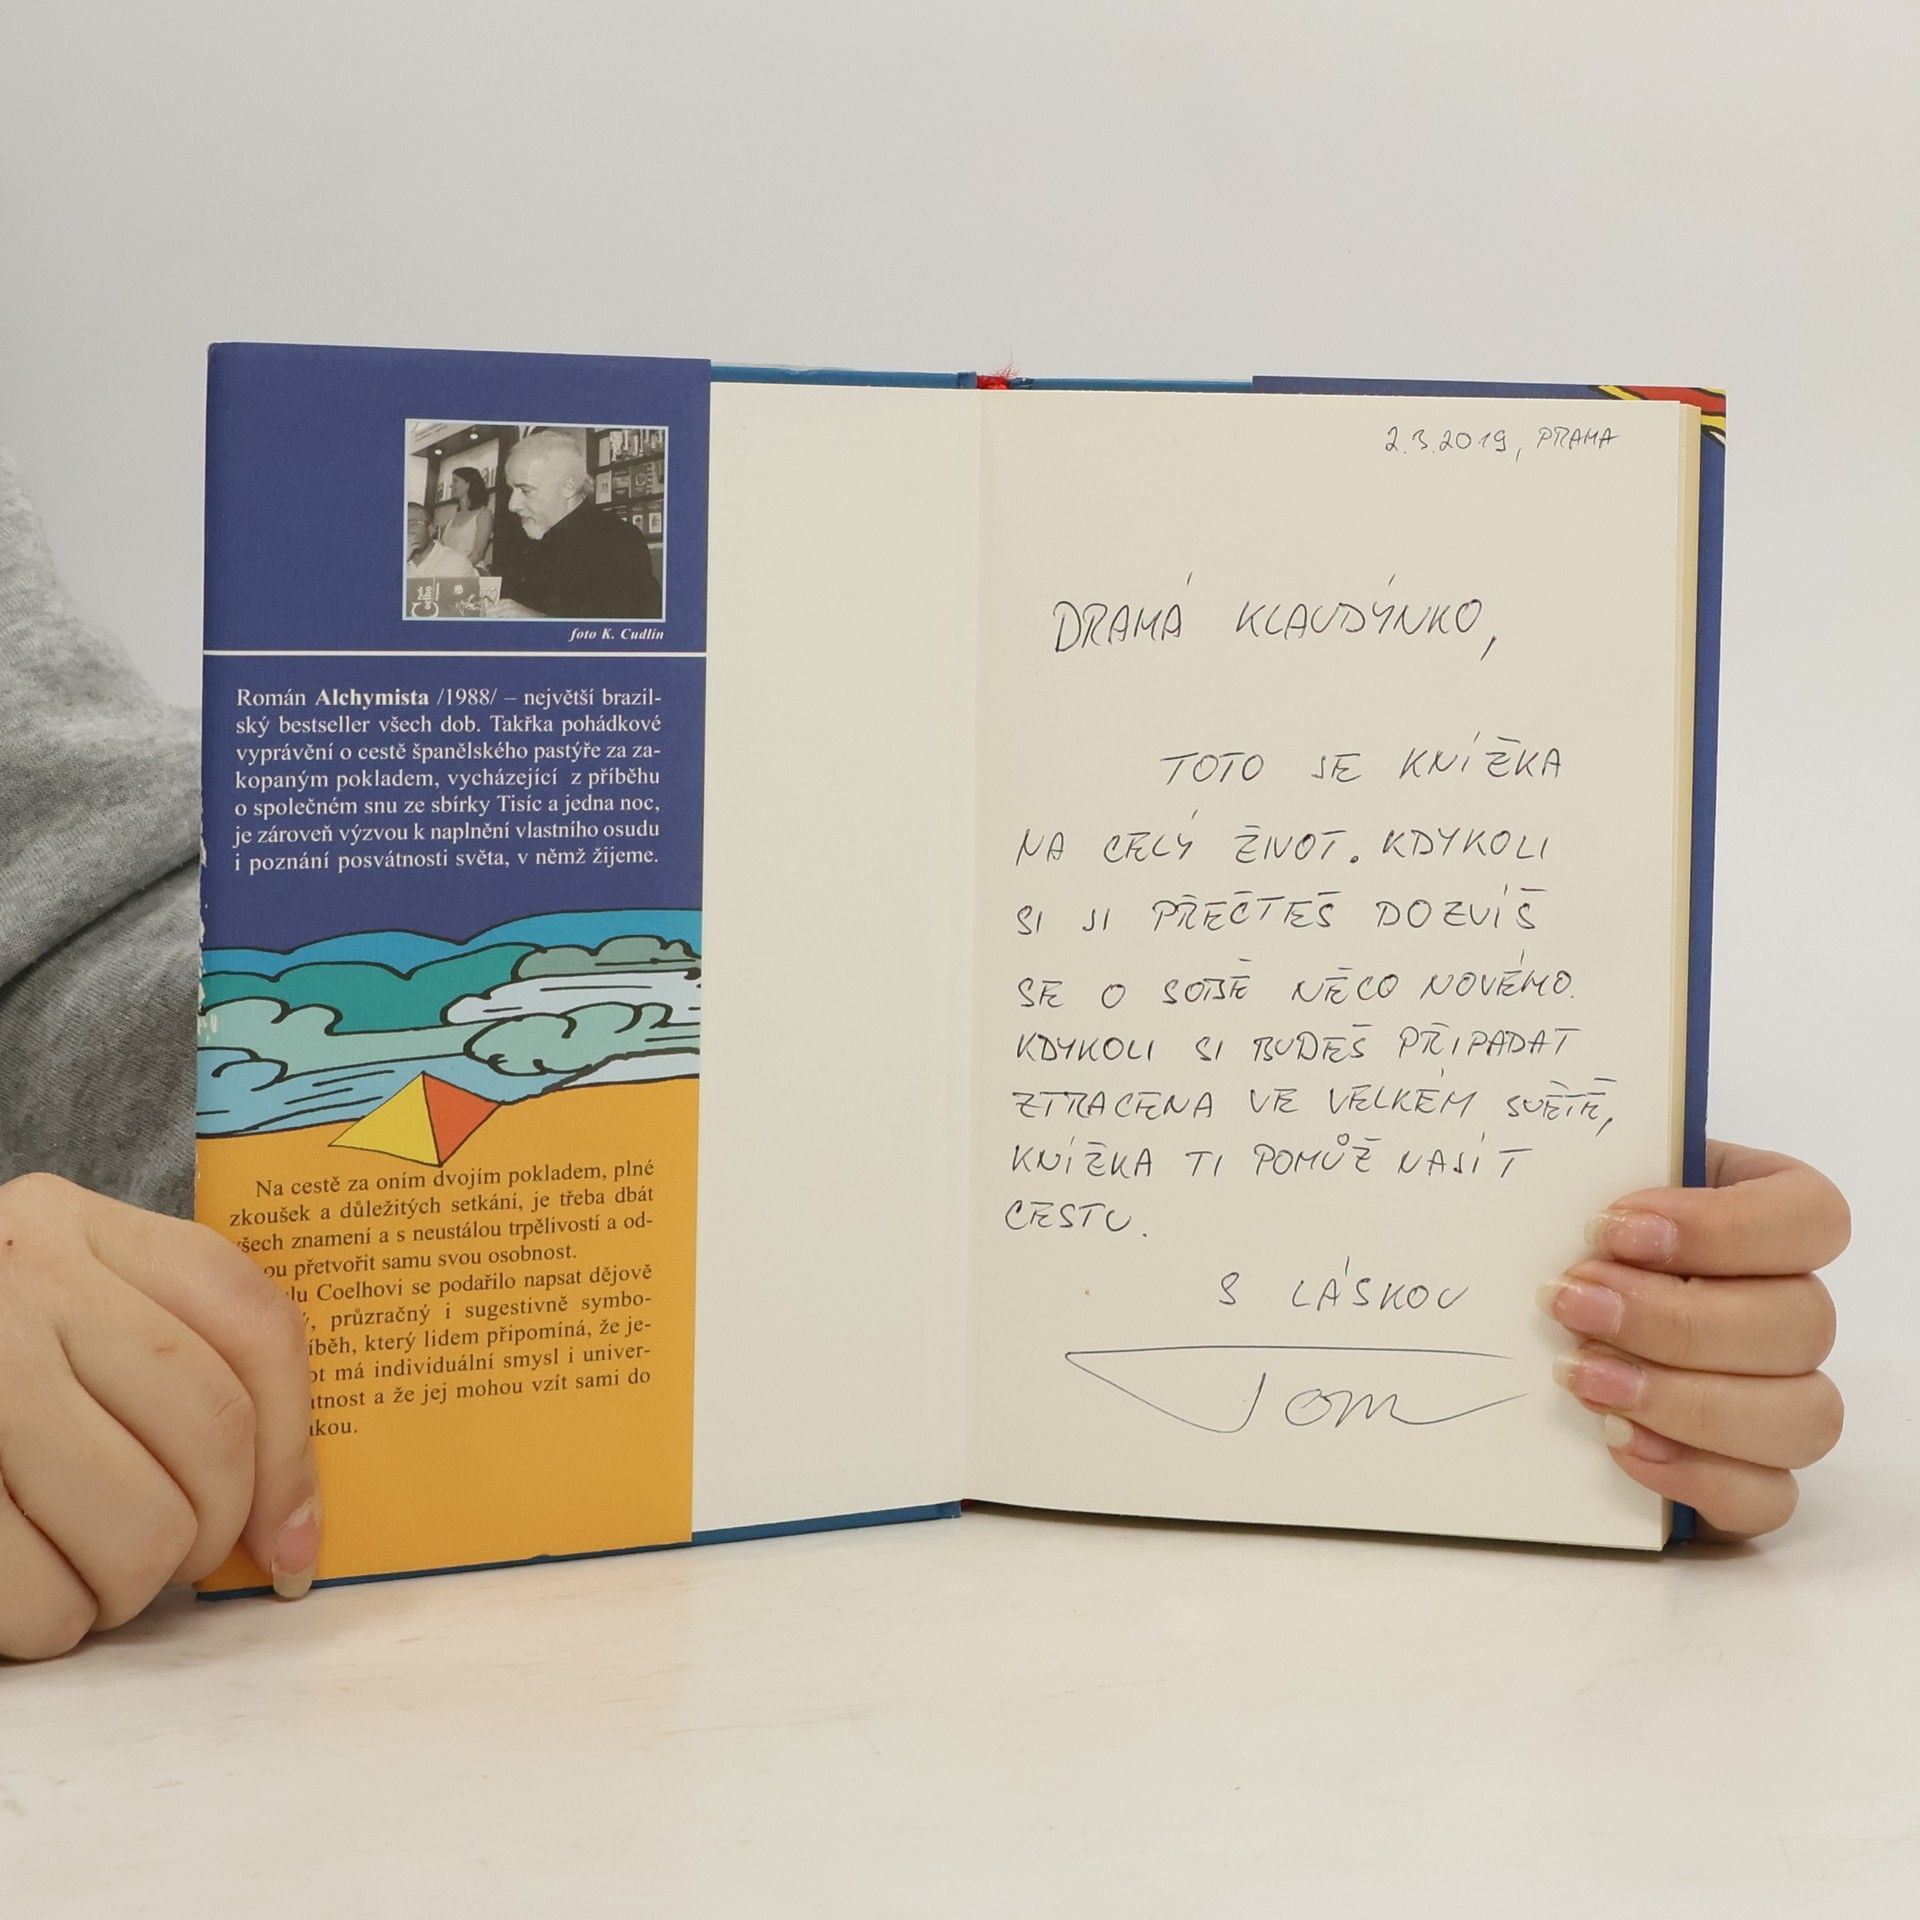 foto K. Cudlín
Román Alchymista /1988/ – největší brazil-
ský bestseller všech dob. Takřka pohádkové
vyprávění o cestě španělského pastýře za za-
kopaným pokladem, vycházející z příběhu
o společném snu ze sbírky Tisíc a jedna noc,
je zároveň výzvou k naplnění vlastního osudu
i poznání posvátnosti světa, v němž žijeme.
Na cestě za oním dvojím pokladem, plné
zkoušek a důležitých setkání, je třeba dbát
všech znamení a s neustálou trpělivostí a od-
přetvořit samu svou osobnost.
Coelhovi se podařilo napsat dějově
průzračný i sugestivně symbo-
který lidem připomíná, že je-
má individuální smysl i univer-
a že jej mohou vzít sami do
2.3.2019, PRAHA
DRAHÁ KLAUDÝNKO,
TOTO JE KNÍŽKA
NA CELÝ ŽIVOT. KDYKOLI
SI JI PŘEČTEŠ DOZVÍŠ
SE O SOBĚ NĚCO NOVÉHO.
KDYKOLI SI BUDEŠ PŘIPADAT
ZTRACENA VE VELKÉM SVĚTĚ,
KNÍŽKA TI POMŮŽ NAJÍT
CESTU.
S LÁSKOU
TOM